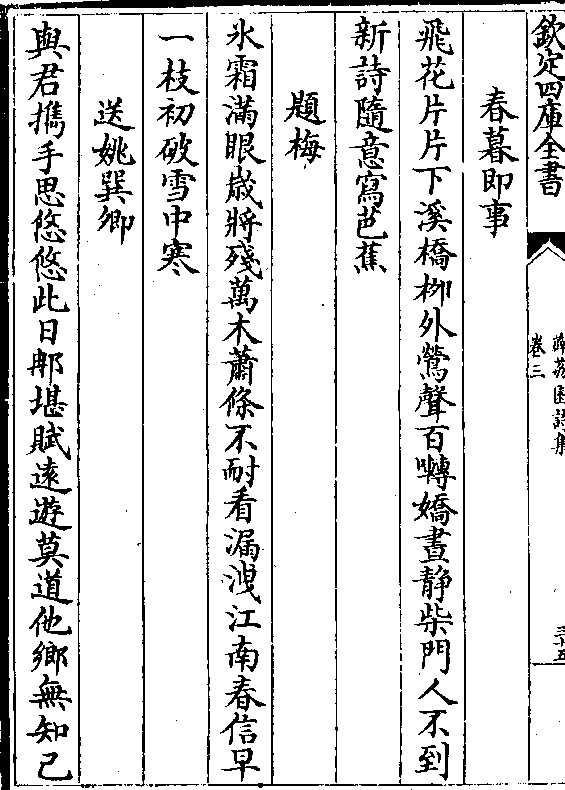 欽定四庫全書
卷三
春暮即事
飛花片片下溪橋栁外鶯聲百囀嬌晝静柴門人不到
新詩隨意寫芭蕉
題梅
氷霜滿眼嵗將殘萬木蕭條不耐看漏洩江南春信早
一枝初破雪中寒
送姚巽卿
與君攜手思悠悠此日那堪賦逺遊莫道他鄉無知己